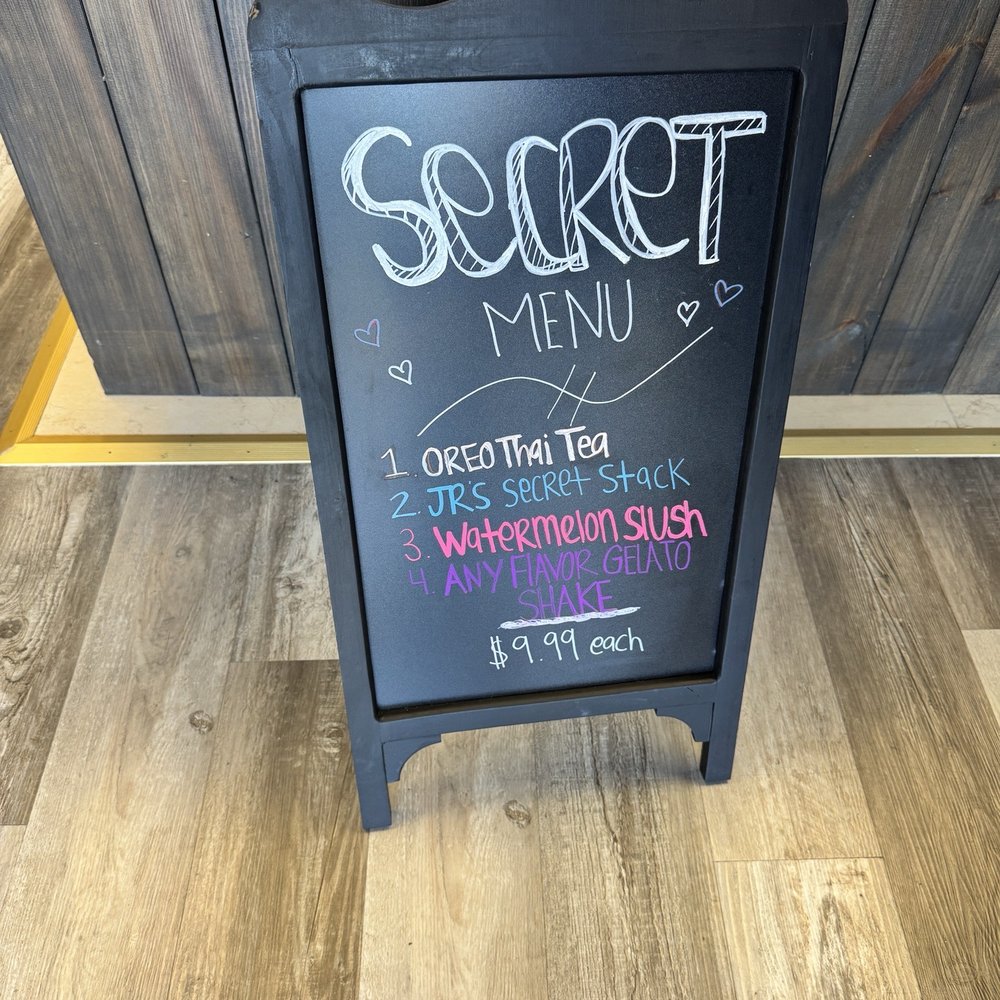 SeCReT
MENU
1. OREO Thai Tea
2. JR'S secret stack
3. Watermelon Slush
4. ANY FlAVOR GELATO
SHAKE
$9.99 each